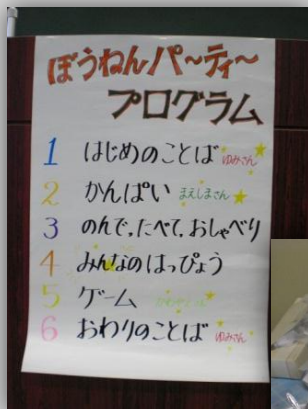 ぼうねんパ〜ティ〜
プログラム
1 はじめのことば ゆみさん
2 かんぱい まえしまさん
3 のんで、たべて、おしゃべり
4 みんなのはっぴょう
5 ゲーム
6 おわりのことば ゆみさん